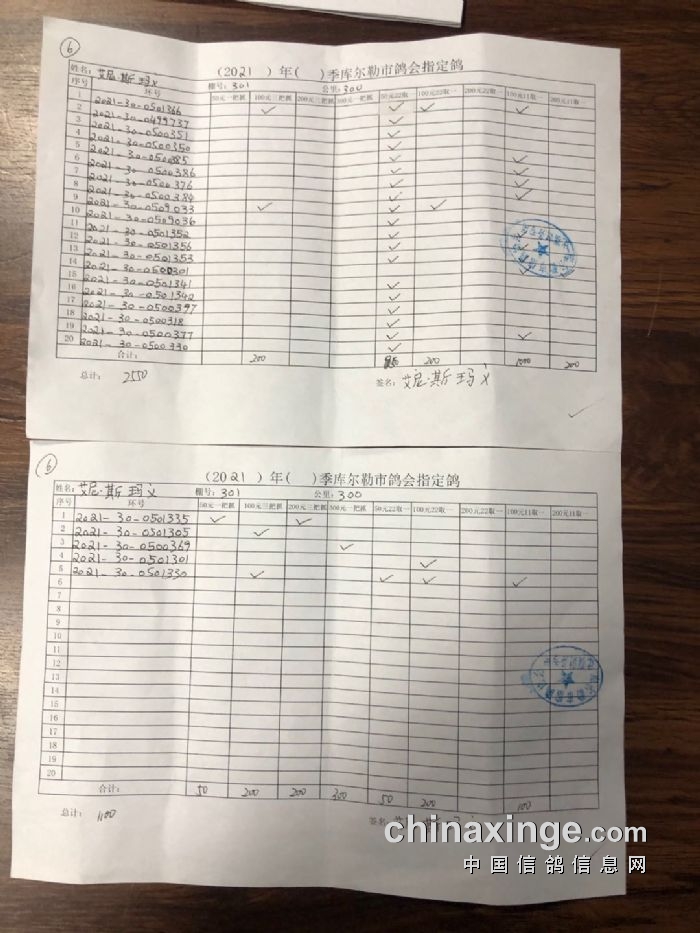 6
(2021 ) 年( )季库尔勒市鸽会指定鸽
姓名: 艾尼·斯玛义 棚号: 301 公里: 300
序号 环号 50元一把抓 100元三把抓 200元三把抓 300元一把抓 50元22取一 100元22取一 200元22取一 100元11取一 200元11取一
1 2021-30-0501366
2 2021-30-0499737
3 2021-30-0500351
4 2021-30-0500350
5 2021-30-0500385
6 2021-30-0500386
7 2021-30-0500376
8 2021-30-0500384
9 2021-30-0509033
10 2021-30-0509036
11 2021-30-0501352
12 2021-30-0501356
13 2021-30-0501353
14 2021-30-0500301
15 2021-30-0501341
16 2021-30-0501342
17 2021-30-0500397
18 2021-30-0500318
19 2021-30-0500377
20 2021-30-0500330
合计: 200 200 1000 200
总计: 2550 签名: 艾尼·斯玛义
6
(2021 ) 年( )季库尔勒市鸽会指定鸽
姓名: 艾尼·斯玛义 棚号: 301 公里: 300
序号 环号 50元一把抓 100元三把抓 200元三把抓 300元一把抓 50元22取一 100元22取一 200元22取一 100元11取一 200元11取一
1 2021-30-0501335
2 2021-30-0501305
3 2021-30-0500369
4 2021-30-0501301
5 2021-30-0501330
6
7
8
9
10
11
12
13
14
15
16
17
18
19
20
合计: 50 200 200 300 50 200 100
总计: 1100 签名:
chinaxinge.com
中国信鸽信息网